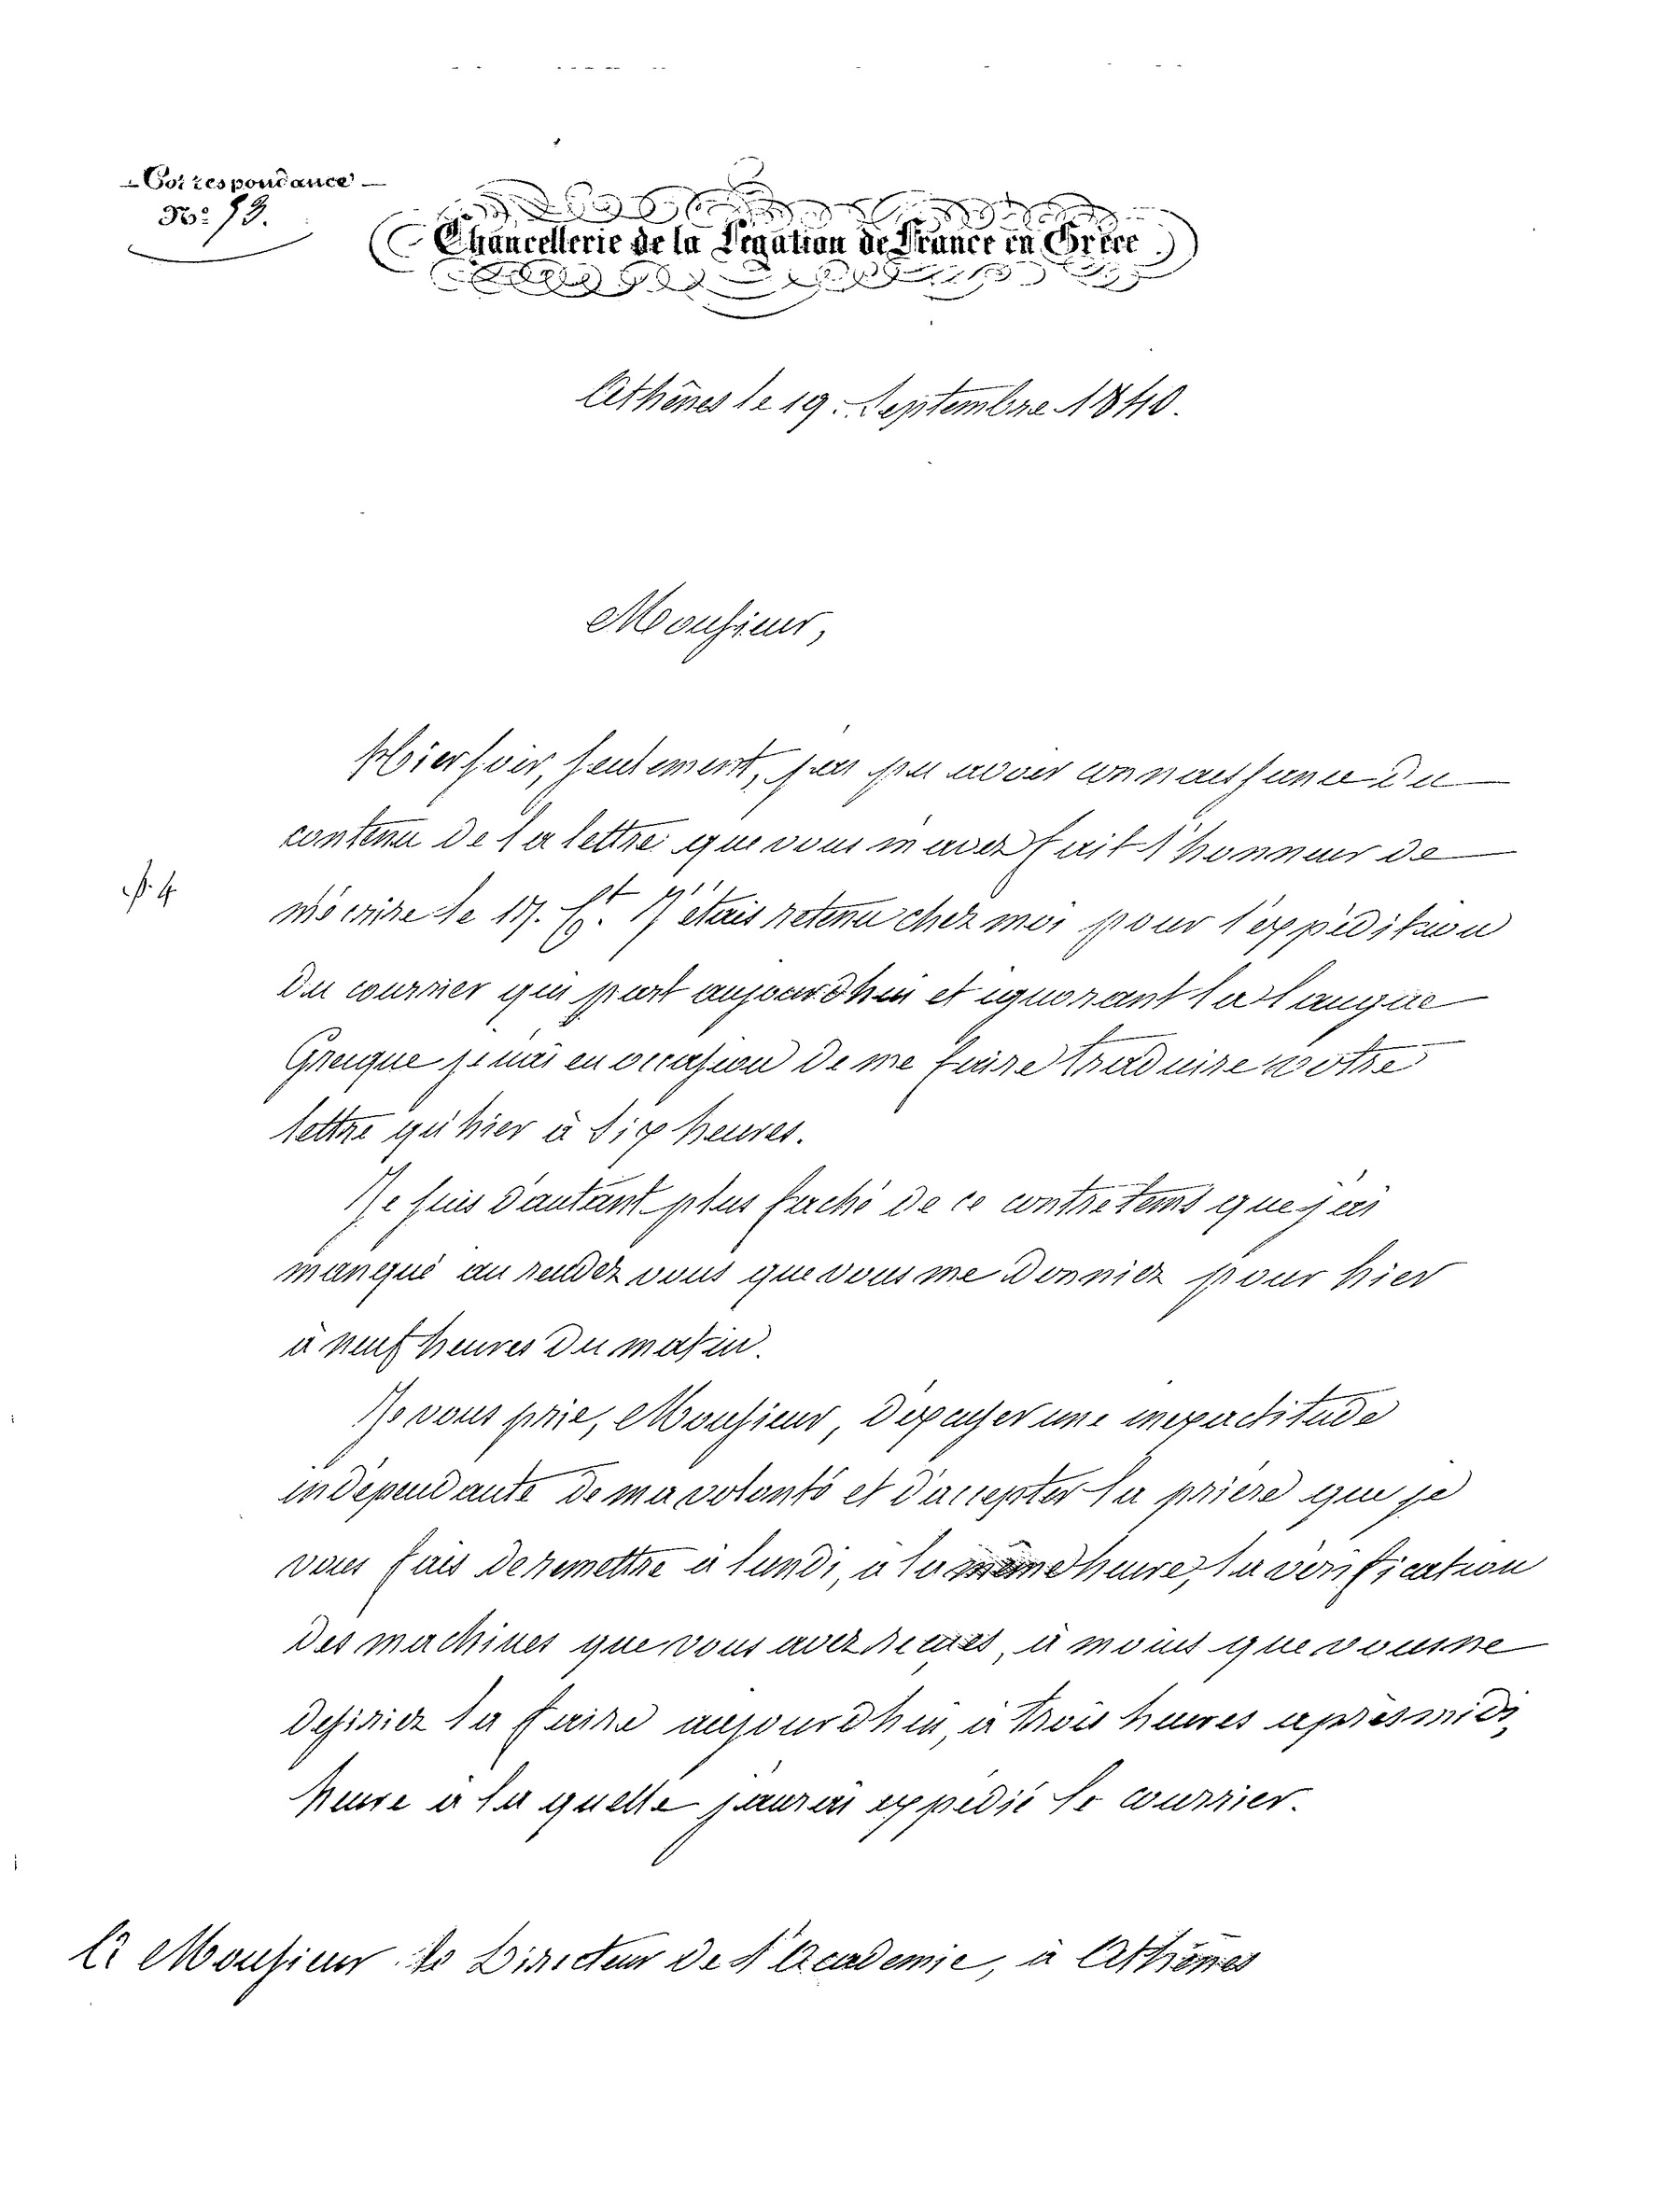 Correspondance
No: 93.
Chancellerie de la Légation de France en Grèce
Athènes le 19. Septembre 1840.
Monsieur,
Hier soir, seulement, j'ai pu avoir connaissance du
contenu de la lettre que vous m'avez fait l'honneur de
m'écrire le 17. Ct. J'étais retenu chez moi pour l'expédition
du courrier qui part aujourdhui et ignorant la langue
Grecque je n'ai eu occasion de me faire traduire votre
lettre qu'hier à six heures.
Je suis d'autant plus faché de ce contretems que j'ai
manqué au rendez vous que vous me donniez pour hier
à neuf heures du matin.
Je vous prie, Monsieur, d'excuser une inexactitude
indépendante de ma volonté et d'accepter la prière que je
vous fais de remettre à lundi, à la même heure, la vérification
des machines que vous avez reçues, à moins que vous ne
desiriez la faire aujourdhui, à trois heures après midi,
heure à la quelle j'aurai expédié le courrier.
A Monsieur le Directeur de l'Academie, à Athènes